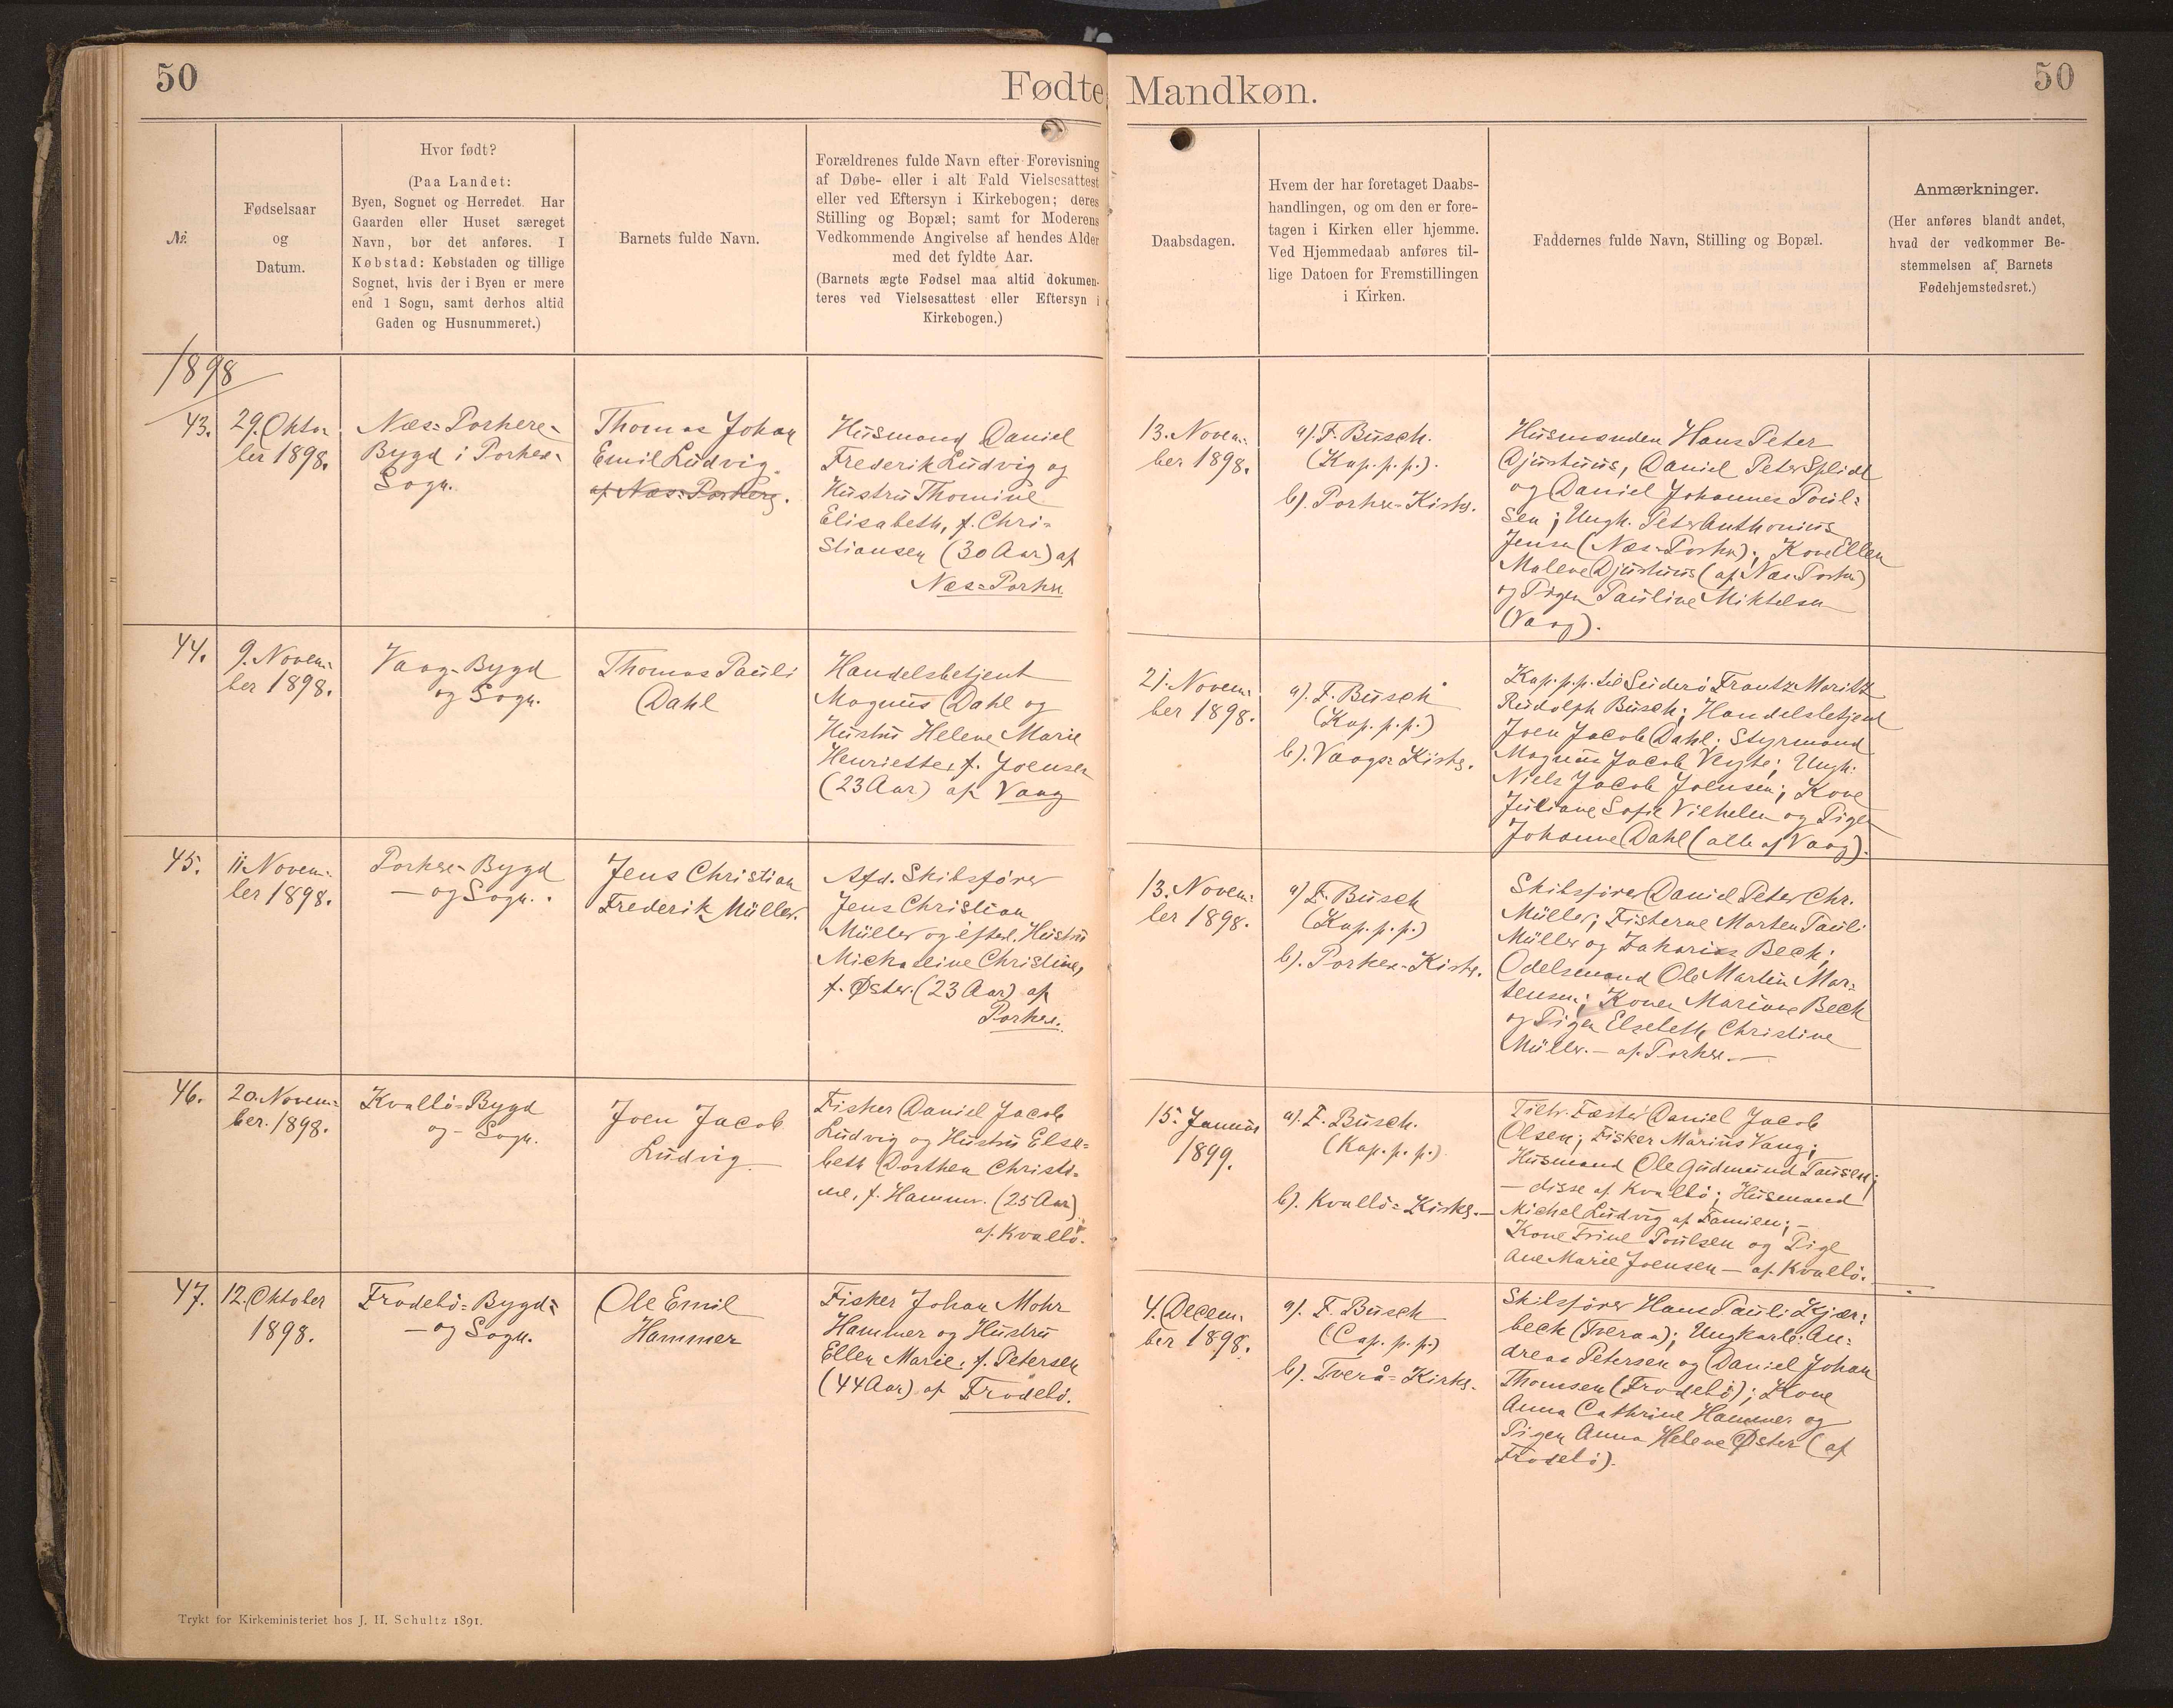 50
Fødte Mandkøn.
50
№
Fødselsaar
og
Datum.
Hvor født?
(Paa Landet:
Byen, Sognet og Herredet. Har
Gaarden eller Huset særeget
Navn, bør det anføres. I
Købstad: Købstaden og tillige
Sognet, hvis der i Byen er mere
end 1 Sogn, samt derhos altid
Gaden og Husnummeret.)
Barnets fulde Navn.
Forældrenes fulde Navn efter Forevisning
af Døbe- eller i alt Fald Vielsesattest
eller ved Eftersyn i Kirkebogen; deres
Stilling og Bopæl; samt for Moderens
Vedkommende Angivelse af hendes Alder
med det fyldte Aar.
(Barnets ægte Fødsel maa altid dokumen-
teres ved Vielsesattest eller Eftersyn i
Kirkebogen.)
Daabsdagen.
Hvem der har foretaget Daabs-
handlingen, og om den er fore-
tagen i Kirken eller hjemme.
Ved Hjemmedaab anføres til-
lige Datoen for Fremstillingen
i Kirken.
Faddernes fulde Navn, Stilling og Bopæl.
Anmærkninger.
(Her anføres blandt andet,
hvad der vedkommer Be-
stemmelsen af Barnets
Fødehjemstedsret.)
1898
43.
29. Okto-
ber 1898.
Næs-Porkere-
Bygd i Porkere-
Sogn.
Thomas Johan
Emil Ludvig.
af Næs-Porkere.
Husmand Daniel
Frederik Ludvig og
Hustru Thomine
Elisabeth, f. Chri-
stiansen (30 Aar) af
Næs-Porkere
13. Novem-
ber 1898.
a). F. Busch.
(Kap. p. p.).
b). Porkere-Kirke.
Husmanden Hans Peter
Djurhuus, Daniel Peter Splidt
og Daniel Johannes Poul-
sen; Ungk. Peter Anthonius
Jensen (Næs-Porkere); Kone Ellen
Malene Djurhuus (af Næs-Porkere)
og Pigen Pauline Mikkelsen
(Vaag).
44.
9. Novem-
ber 1898.
Vaag-Bygd
og Sogn.
Thomas Pauli
Dahl
Handelsbetjent
Magnus Dahl og
Hustru Helene Marie
Henriette, f. Joensen
(23 Aar) af Vaag
21. Novem-
ber 1898.
a). F. Busch
(Kap. p. p.)
b). Vaags-Kirke.
Kap. p. p. til Suderø Frantz Moritz
Rudolph Busch; Handelsbetjent
Joen Jacob Dahl; Styrmand
Magnus Jacob Veyhe; Ungk.
Niels Jacob Joensen; Kone
Juliane Sofie Vilhelm og Pigen
Johanne Dahl (alle af Vaag).
45.
11. Novem-
ber 1898.
Porkere-Bygd
— og Sogn.
Jens Christian
Frederik Müller.
Afd. Skibsfører
Jens Christian
Müller og efterl. Hustru
Michaeline Christine,
f. Øster. (23 Aar) af
Porkere.
13. Novem-
ber 1898.
a) F. Busch
(Kap. p. p.)
b). Porkere-Kirke.
Skibsfører Daniel Peter Chr.
Müller; Fiskerne Morten Pauli
Müller og Zakarias Bech;
Odelsmand Ole Martin Mor-
tensen; Konen Mariane Bech
og Pigen Elsebeth Christine
Müller. — af Porkere. —
46.
20. Novem-
ber. 1898.
Kvalbø-Bygd
og - Sogn.
Joen Jacob
Ludvig
Fisker Daniel Jacob
Ludvig og Hustru Else-
beth Dorthea Christi-
ne, f. Hammer. (25 Aar)
af Kvalbø.
15. Januar
1899.
a). F. Busch.
(Kap. p. p.)
b). Kvalbø-Kirke. —
Fæster Daniel Jacob
Olsen; Fisker Marius Vang;
Husmand Ole Gudmund Tausen;
— disse af Kvalbø; Husmand
Michel Ludvig af Famien; —
Kone Trine Poulsen og Pige
Ane Marie Joensen — af Kvalbø.
47.
12. Oktober
1898.
Frodebø-Bygd-
— og Sogn.
Ole Emil
Hammer
Fisker Johan Mohr
Hammer og Hustru
Ellen Marie, f. Petersen
(44 Aar) af Frodebø.
4. Decem-
ber 1898.
a). F. Busch
(Cap. p. p.)
b). Tverå-Kirke.
Skibsfører Hans Pauli Kjær-
beck (Tveraa); Ungkarle: An-
dreas Petersen og Daniel Johan
Thomsen (Frodebø); Kone
Anna Cathrine Hammer og
Pigen Anna Helene Øster (af
Frodebø).
Trykt for Kirkeministeriet hos J. H. Schultz 1891.